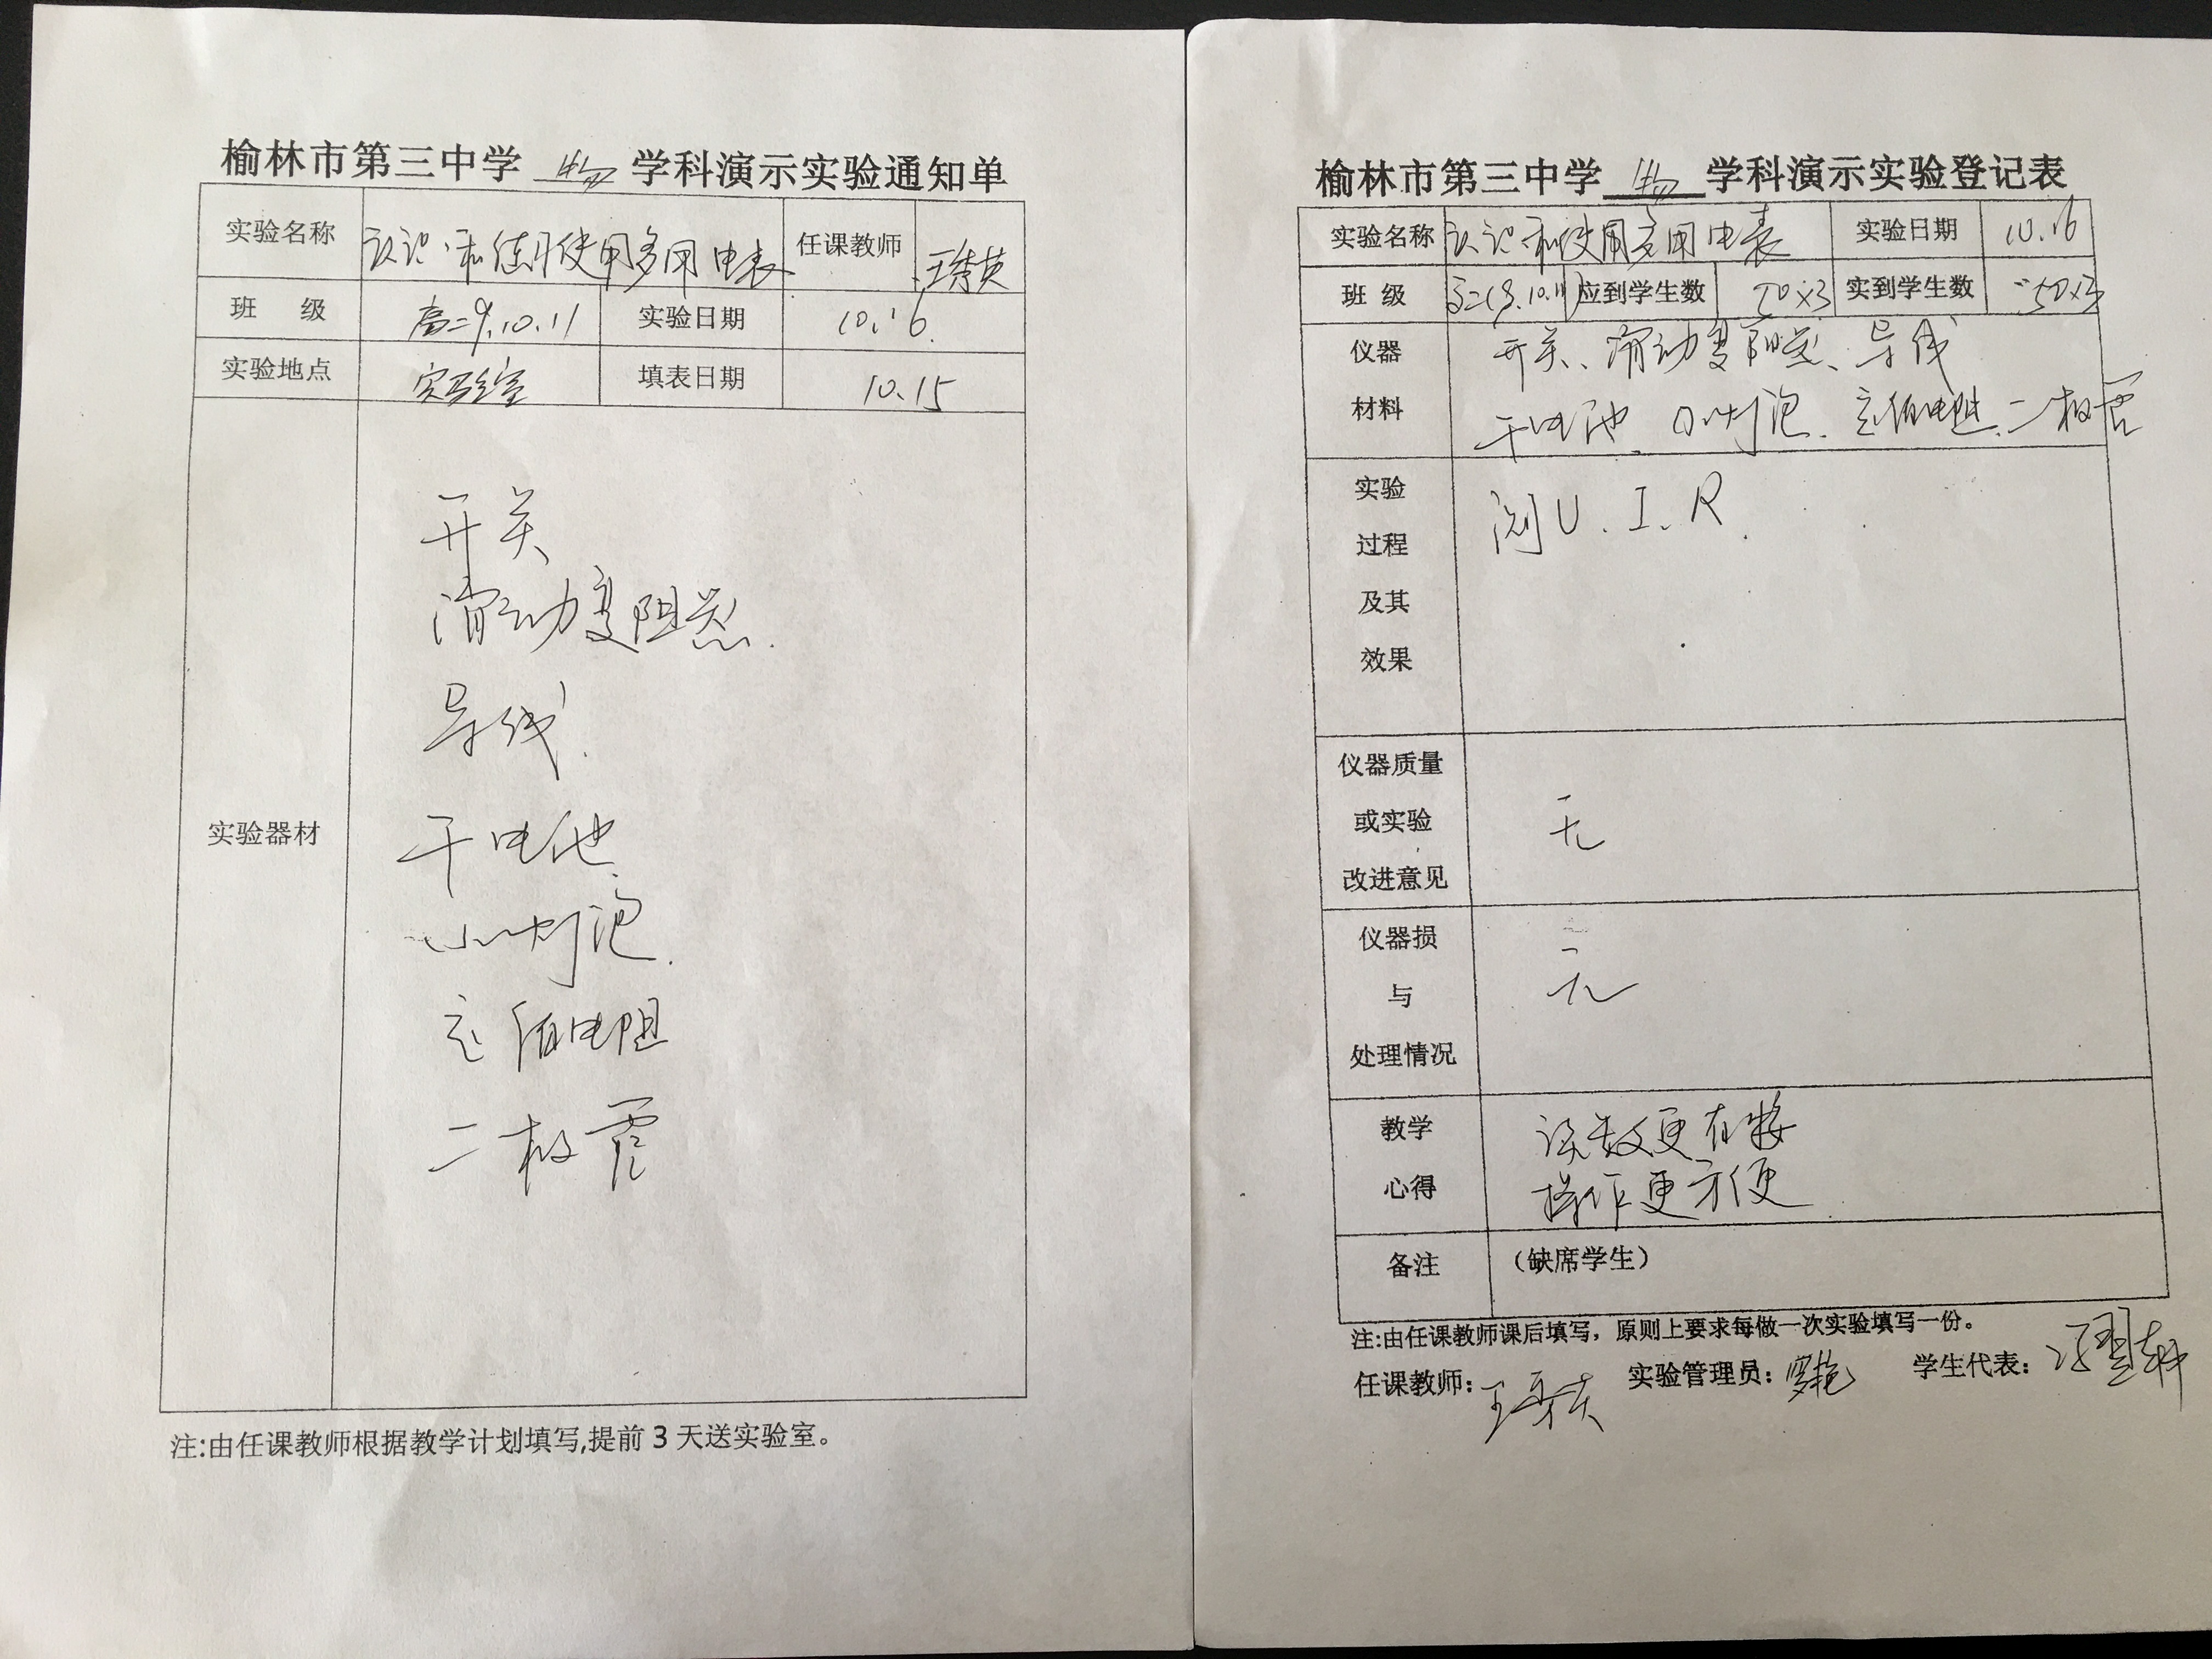 榆林市第三中学 物 学科演示实验通知单
实验名称 认识和使用多用电表 任课教师
班 级 高二9.10.11 实验日期 10.16.
实验地点 实验室 填表日期 10.15
实验器材
开关
滑动变阻器.
导线.
干电池.
小灯泡.
定值电阻
二极管
注:由任课教师根据教学计划填写,提前3天送实验室。
榆林市第三中学 物 学科演示实验登记表
实验名称 认识和使用多用电表 实验日期 10.16
班 级 高二(9.10.11) 应到学生数 50×3 实到学生数 50×3
仪器
材料
开关、滑动变阻器、导线
干电池、小灯泡、定值电阻、二极管
实验
过程
及其
效果
测U、I、R.
仪器质量
或实验
改进意见
无
仪器损
与
处理情况
无
教学
心得
读数更直接
操作更方便
备注 （缺席学生）
注:由任课教师课后填写，原则上要求每做一次实验填写一份。
任课教师: 实验管理员: 学生代表: